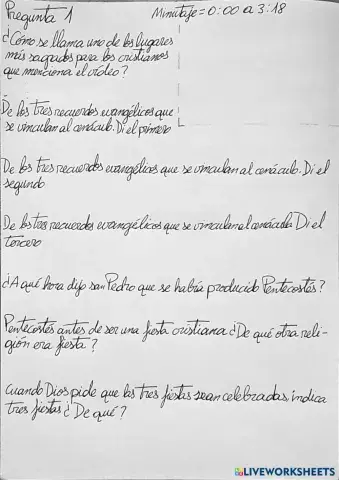 Pregunta 1 Minutaje = 0:00 a 3:18
¿Cómo se llama uno de los lugares
más sagrados para los cristianos
que menciona el vídeo?
De los tres recuerdos evangélicos que
se vinculan al cenáculo. Di el primero
De los tres recuerdos evangélicos que se vinculan al cenáculo. Di el
segundo
De los tres recuerdos evangélicos que se vinculan al cenáculo Di el
tercero
¿A qué hora dijo san Pedro que se había producido Pentecostés?
Pentecostés antes de ser una fiesta cristiana ¿De qué otra reli-
gión era fiesta?
Cuando Dios pide que las tres fiestas sean celebradas, indica
tres fiestas ¿De qué?
LIVEWORKSHEETS